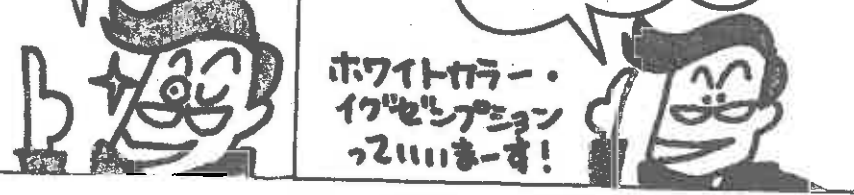 ホワイトカラー・
イグゼンプション
っていいまーす!